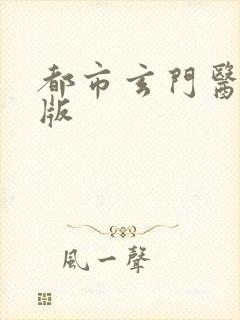 都市玄門醫
版
風一聲